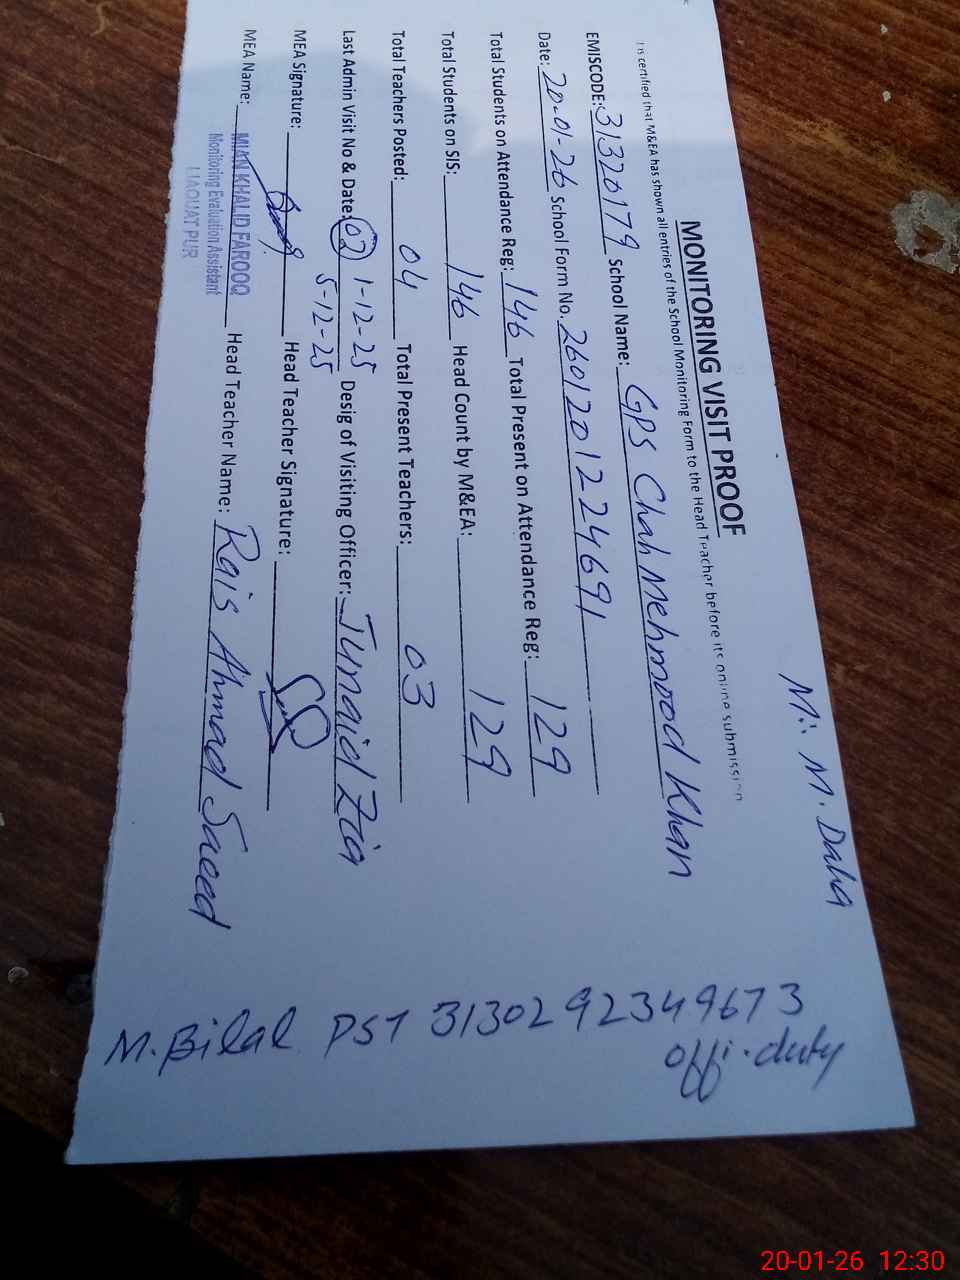 M: M. Daha
MONITORING VISIT PROOF
It is certified that M&EA has shown all entries of the School Monitoring Form to the Head Teacher before its online submission
EMISCODE: 31320179 School Name: GPS Chah Mehmood Khan
Date: 20-01-26 School Form No. 2601201224691
Total Students on Attendance Reg: 146 Total Present on Attendance Reg: 129
Total Students on SIS: 146 Head Count by M&EA: 129
Total Teachers Posted: 04 Total Present Teachers: 03
Last Admin Visit No & Date: 02 1-12-25 Desig of Visiting Officer: Junaid Zia
5-12-25
MEA Signature: Head Teacher Signature:
MEA Name: MIAN KHALID FAROOQ Head Teacher Name: Rais Ahmad Saeed
Monitoring Evaluation Assistant
LIAQUAT PUR
M. Bilal PST 3130292349673
offi. duty
20-01-26 12:30